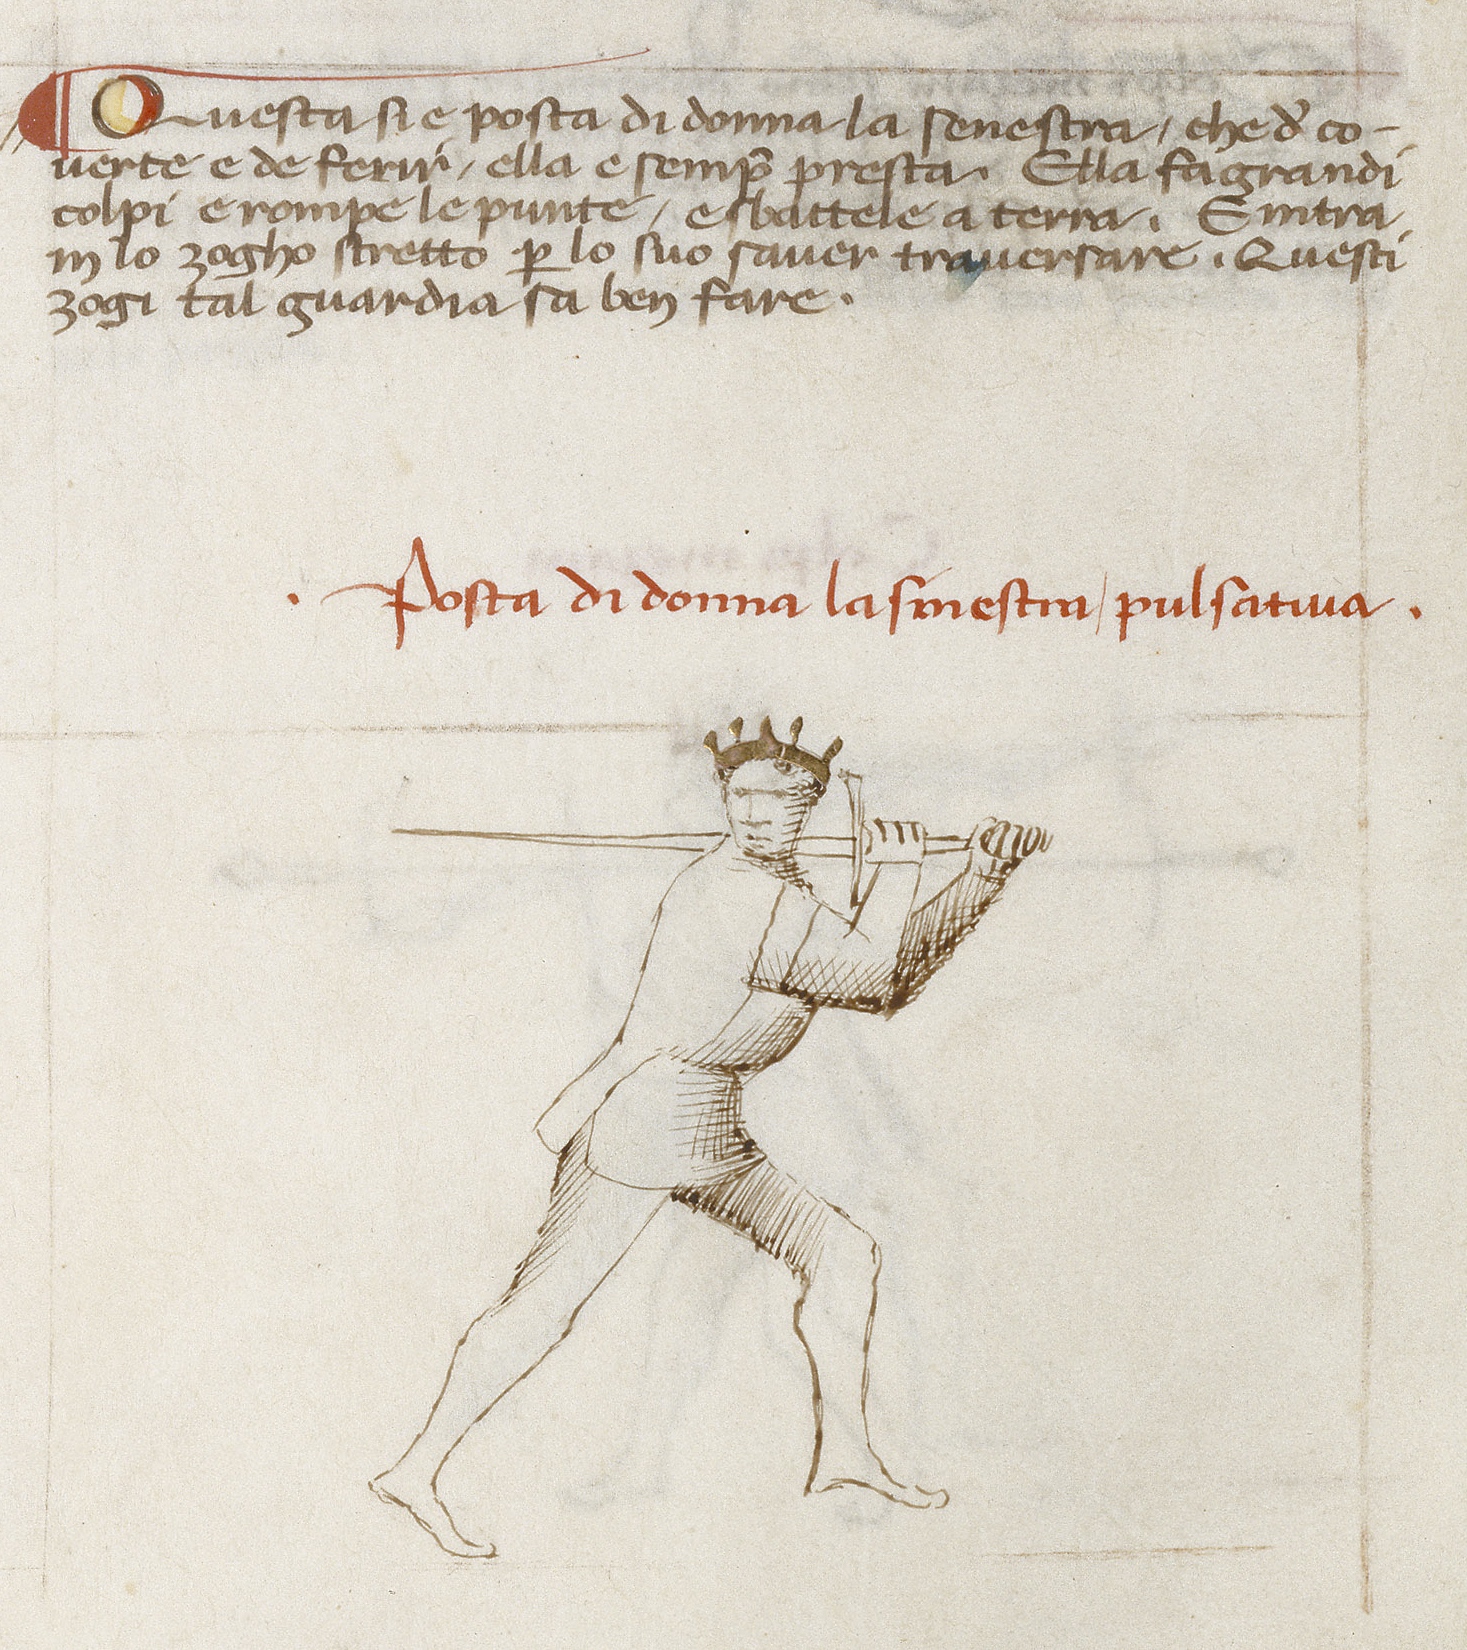 Questa si e posta di donna la senestra / che d̉ co-
uerte e de ferir̉ / ella e semp̉ presta. Ella fa grandi
colpi e rompe le punte / e sbattele a terra. E intra
in lo zogho stretto ꝑ lo suo sauer trauersare. Questi
zogi tal guardia sa ben fare.
. Posta di donna la sinestra / pulsatiua .